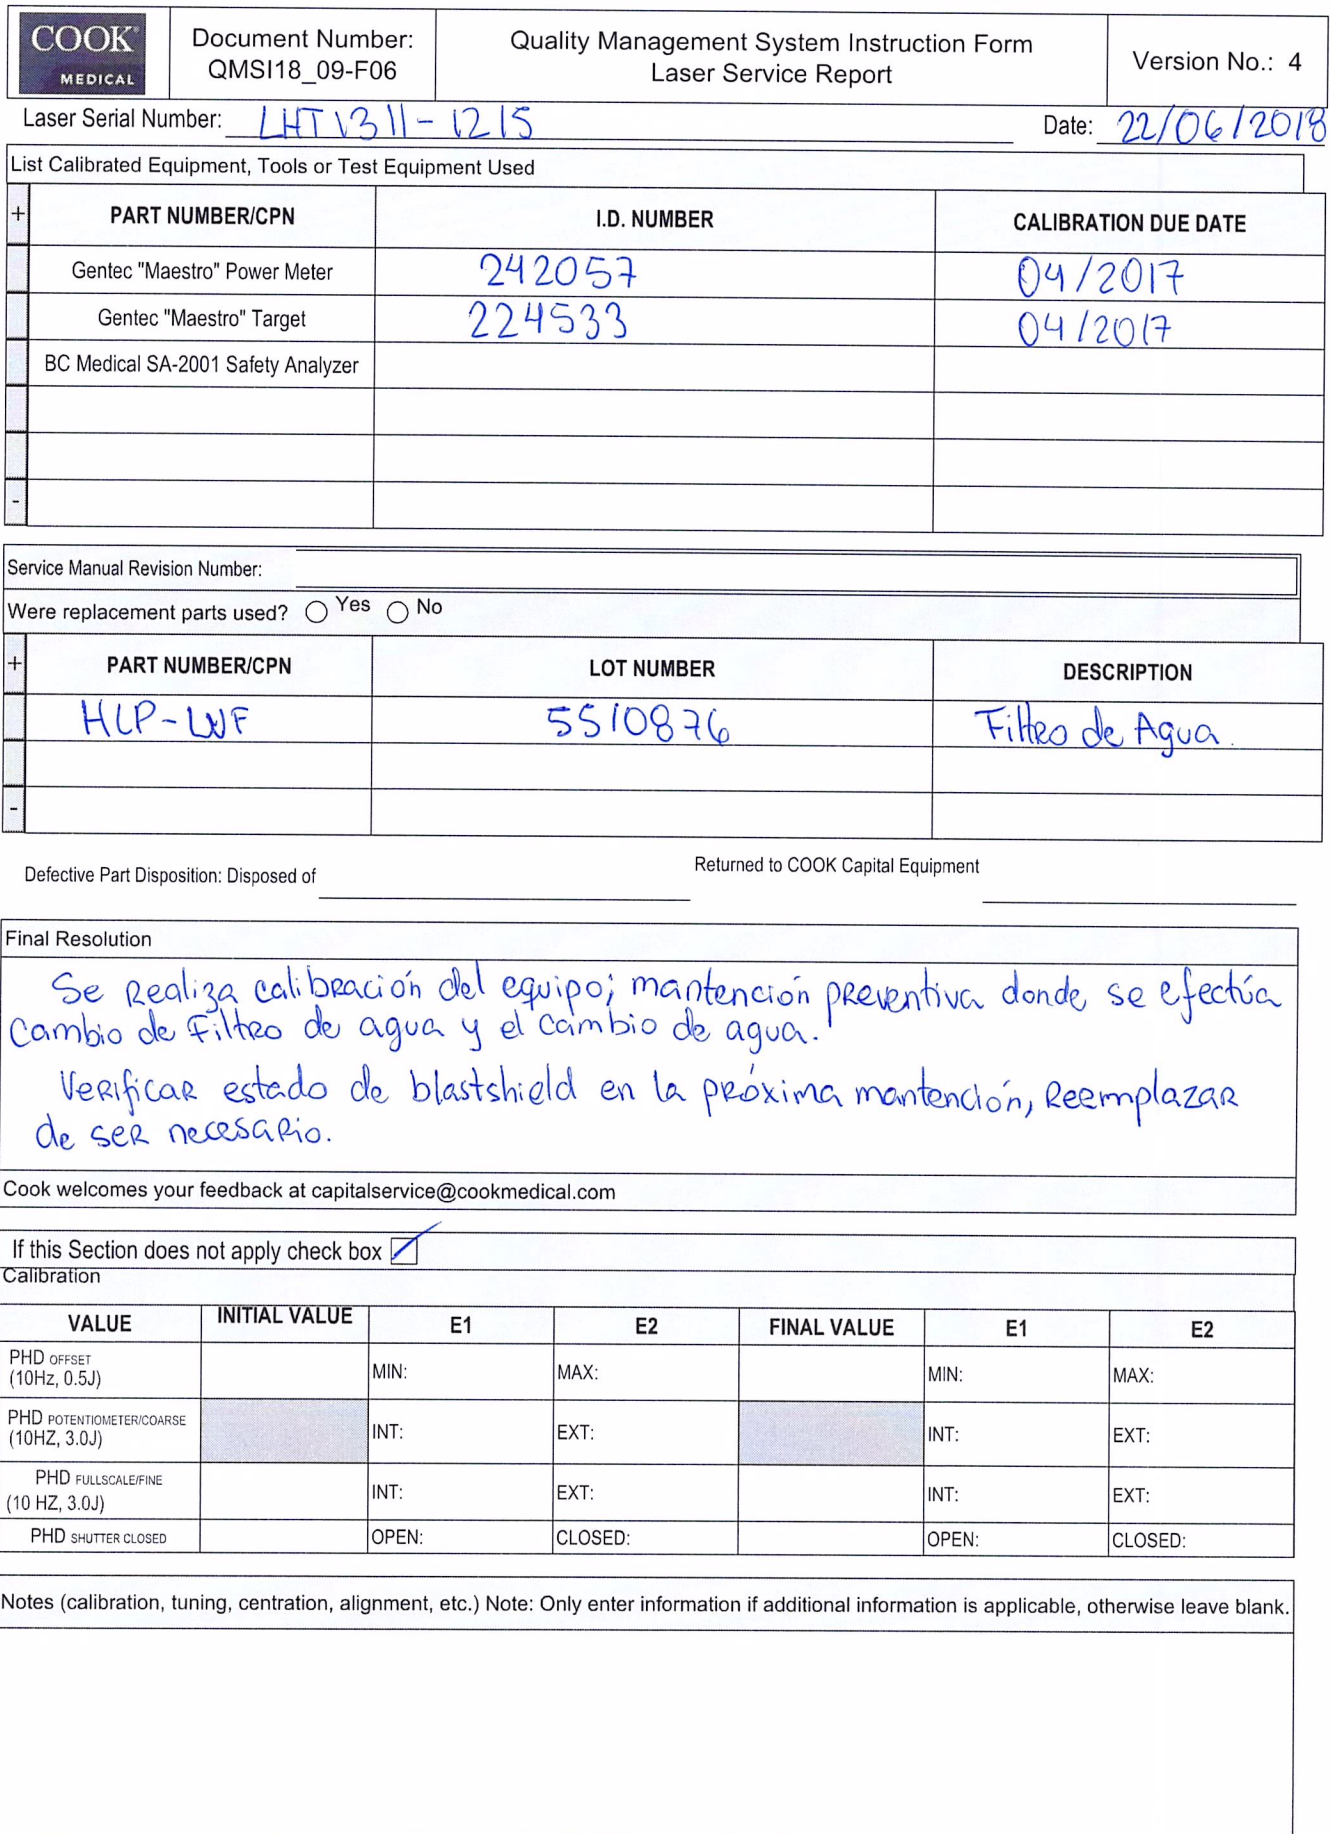 COOK
MEDICAL
Document Number:
QMSI18_09-F06
Quality Management System Instruction Form
Laser Service Report
Version No.: 4
Laser Serial Number: LHT1311-1215
Date: 22/06/2018
List Calibrated Equipment, Tools or Test Equipment Used
+ PART NUMBER/CPN I.D. NUMBER CALIBRATION DUE DATE
Gentec "Maestro" Power Meter 242057 04/2017
Gentec "Maestro" Target 224533 04/2017
BC Medical SA-2001 Safety Analyzer
-
Service Manual Revision Number:
Were replacement parts used? Yes No
+ PART NUMBER/CPN LOT NUMBER DESCRIPTION
HLP-LWF 5510876 Filtro de Agua.
-
Defective Part Disposition: Disposed of
Returned to COOK Capital Equipment
Final Resolution
Se Realiza calibración del equipo; mantención preventiva donde se efectúa
Cambio de Filtro de agua y el cambio de agua.
Verificar estado de blastshield en la próxima mantención, Reemplazar
de ser necesario.
Cook welcomes your feedback at capitalservice@cookmedical.com
If this Section does not apply check box
Calibration
VALUE INITIAL VALUE E1 E2 FINAL VALUE E1 E2
PHD OFFSET
(10Hz, 0.5J) MIN: MAX: MIN: MAX:
PHD POTENTIOMETER/COARSE
(10HZ, 3.0J) INT: EXT: INT: EXT:
PHD FULLSCALE/FINE
(10 HZ, 3.0J) INT: EXT: INT: EXT:
PHD SHUTTER CLOSED OPEN: CLOSED: OPEN: CLOSED:
Notes (calibration, tuning, centration, alignment, etc.) Note: Only enter information if additional information is applicable, otherwise leave blank.